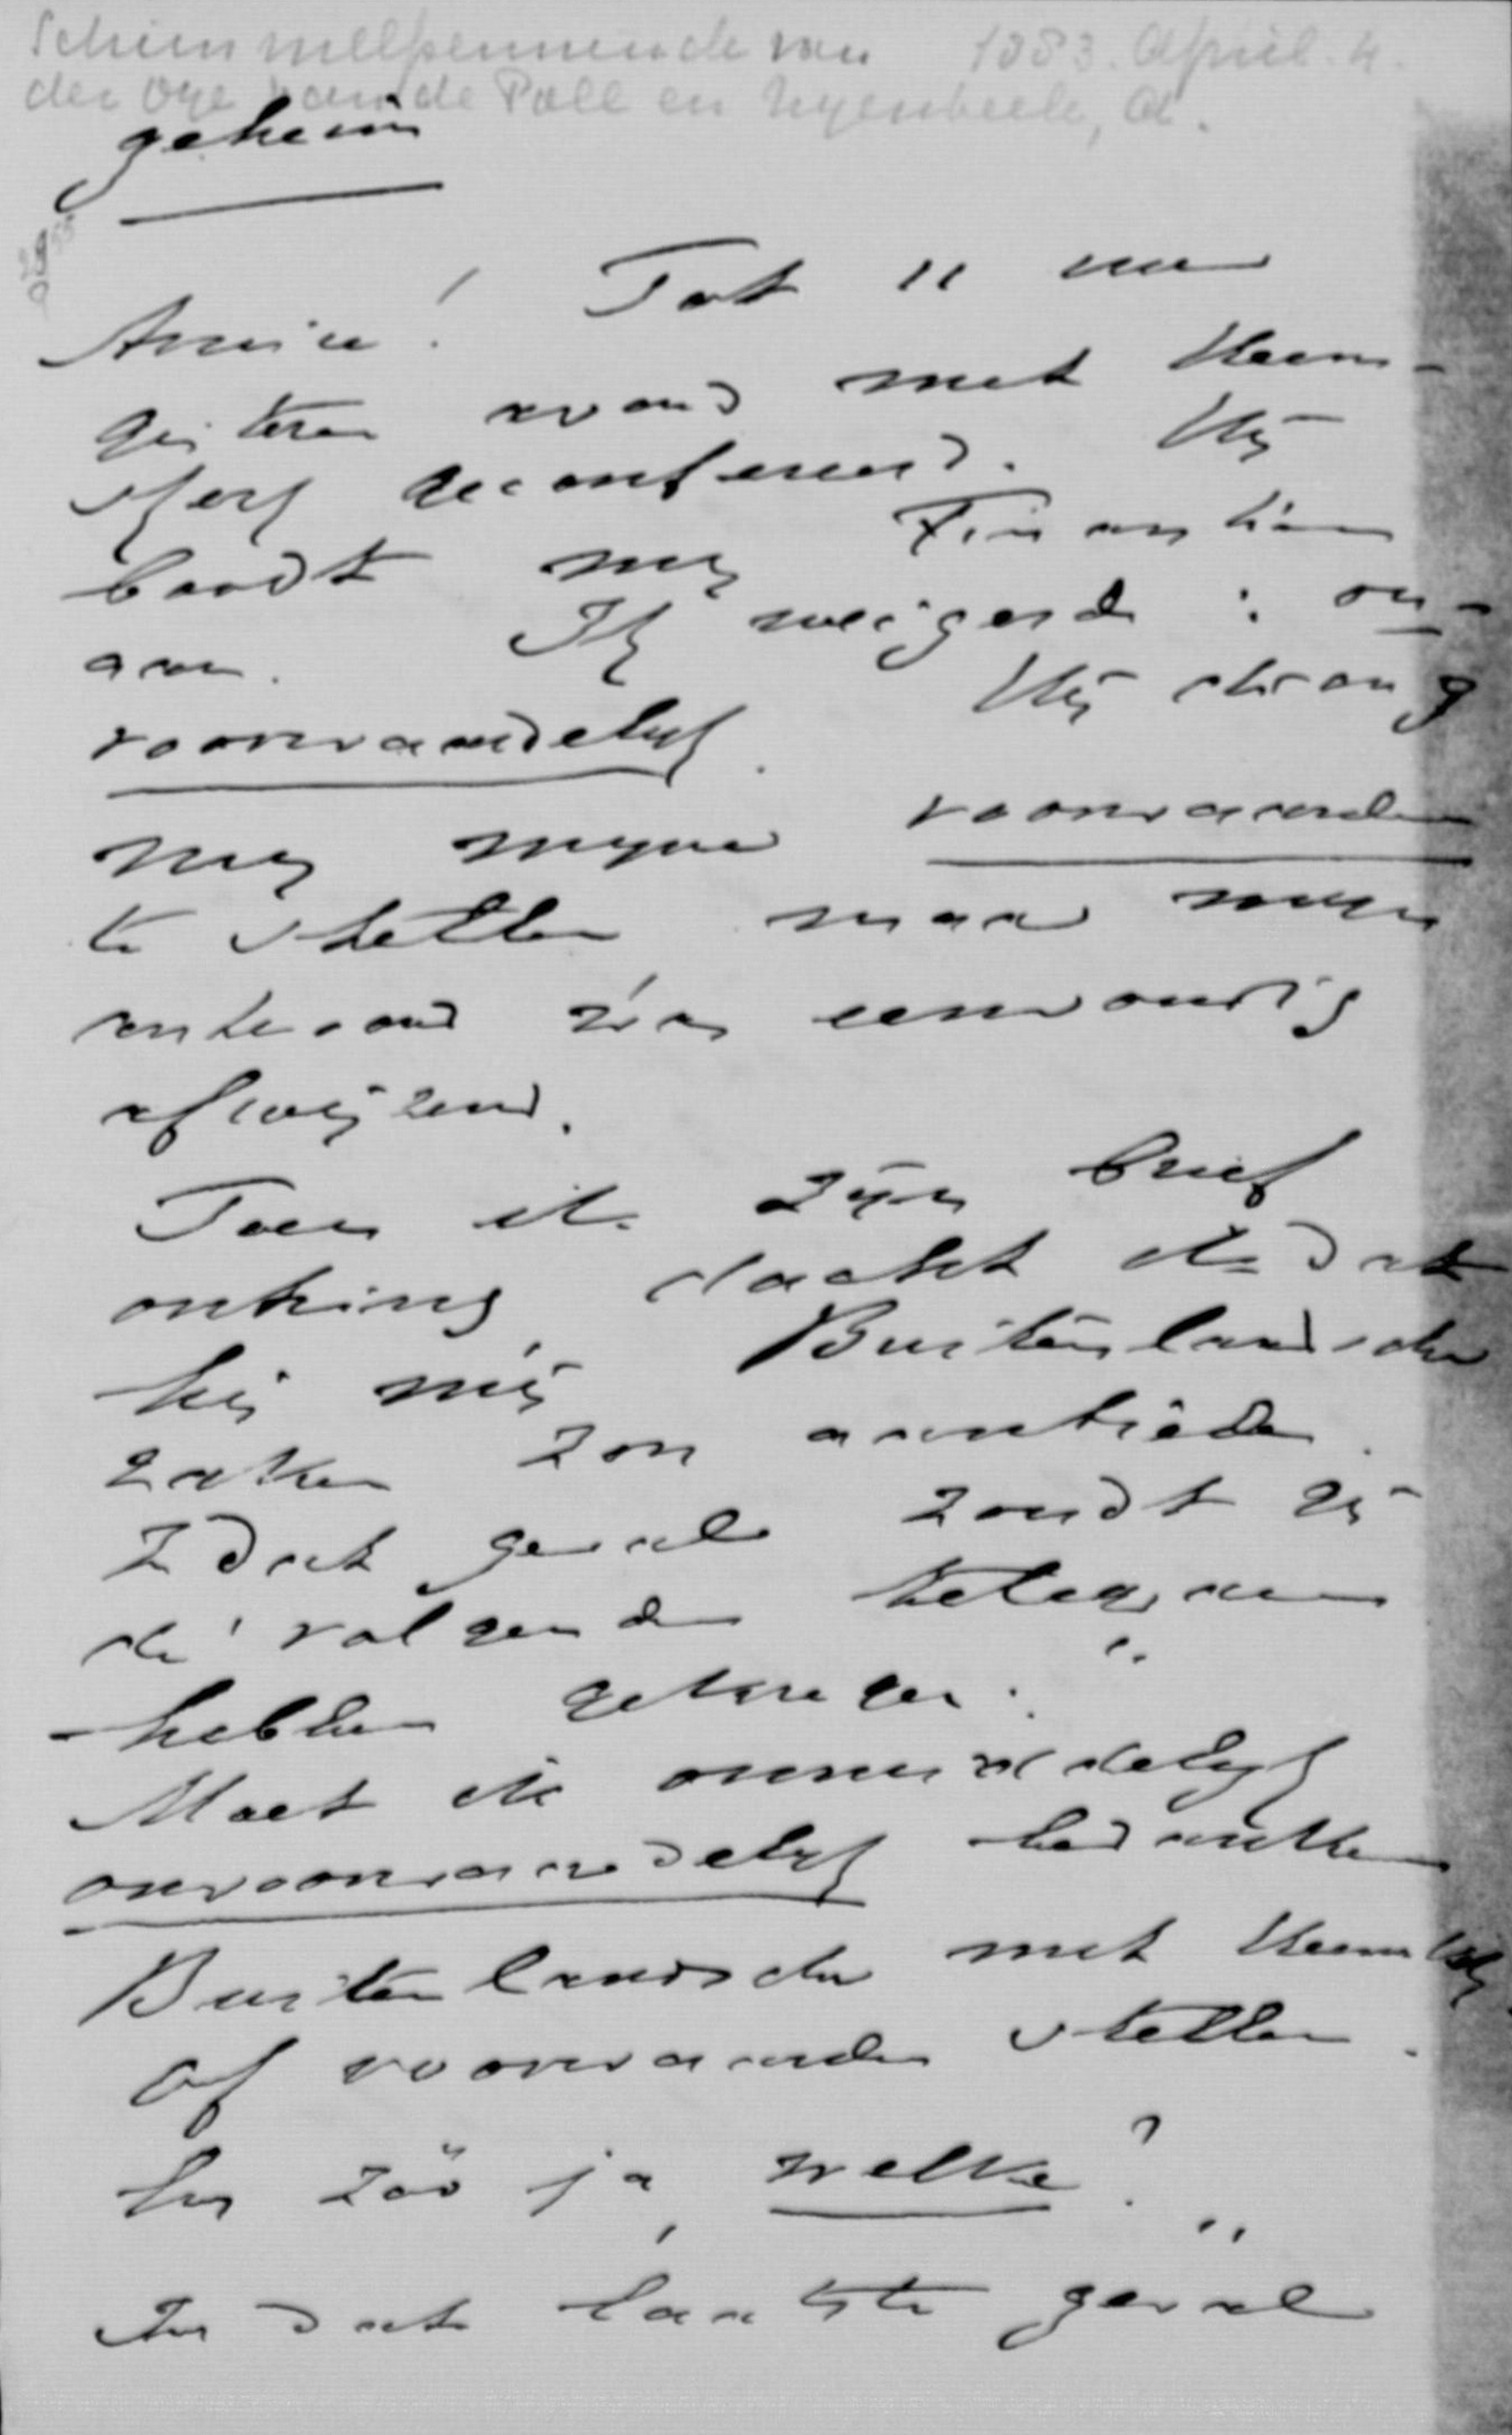 Schimmelpenninck van 1883. April. 4.
der Oye van de Poll en Nyenbeek, A.
geheim
Amice! Tot 11 uur
gisteren avond met Heems-
kerk geconfereerd. Hij
boodt mij Financiën
aan. Ik weigerde: on-
voorwaardelijk. Hij drong
mij mijne voorwaarden
te stellen maar mijn
antwoord was eenvoudig
afwijzend.
Toen ik zijn brief
ontving, dacht ik dat
hij mij Buitenlandsche
zaken zou aanbieden.
In dat geval zoudt gij
dit volgende telegram
hebben gekregen: "
Moet ik onmiddelijk
onvoorwaardelijk bedanken
Buitenlandsche met Heemskerk
of voorwaarden stellen.
Zoo ja, welke? "
In dat laatste geval